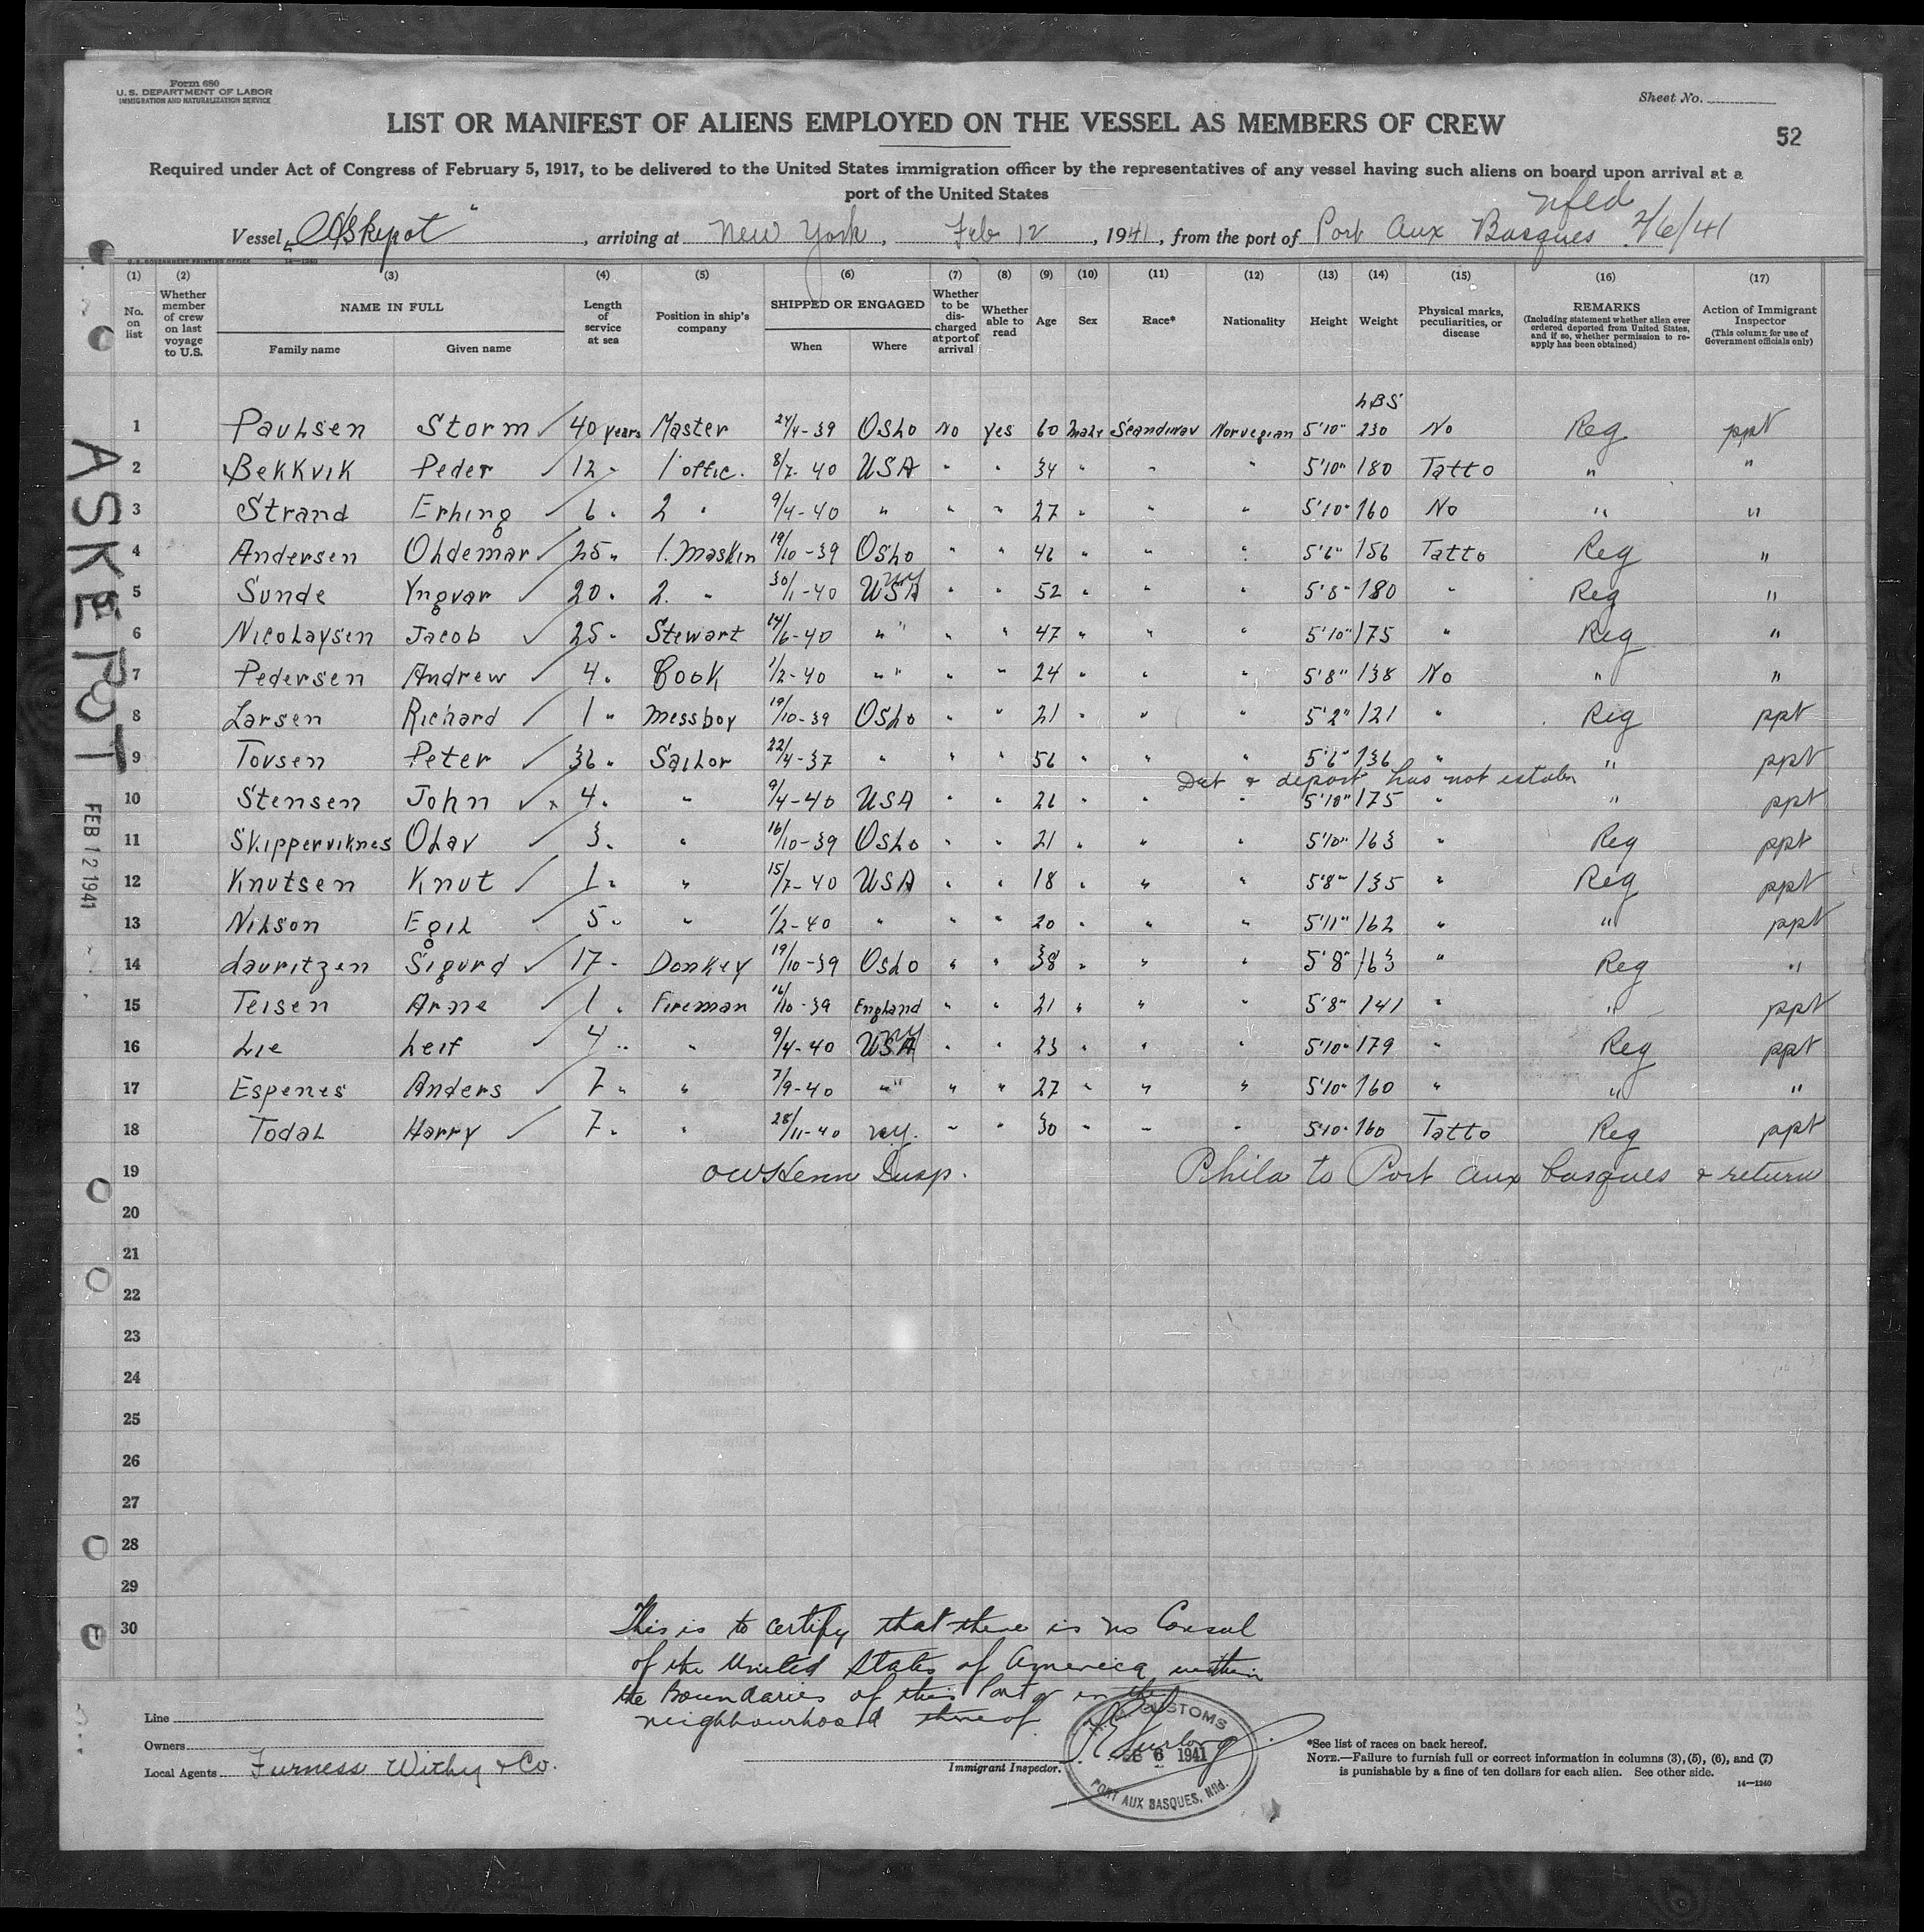 Form 680
U. S. DEPARTMENT OF LABOR
IMMIGRATION AND NATURALIZATION SERVICE
Sheet No.
LIST OR MANIFEST OF ALIENS EMPLOYED ON THE VESSEL AS MEMBERS OF CREW
52
Required under Act of Congress of February 5, 1917, to be delivered to the United States immigration officer by the representatives of any vessel having such aliens on board upon arrival at a
port of the United States
Nfld
Vessel "Askepot", arriving at New York, Feb 12, 1941, from the port of Port Aux Basques 2/6/41
U. S. GOVERNMENT PRINTING OFFICE 14—1240
(1) (2) (3) (4) (5) (6) (7) (8) (9) (10) (11) (12) (13) (14) (15) (16) (17)
No. on list
Whether member of crew on last voyage to U.S.
NAME IN FULL
Family name
Given name
Length of service at sea
Position in ship's company
SHIPPED OR ENGAGED
When
Where
Whether to be discharged at port of arrival
Whether able to read
Age
Sex
Race*
Nationality
Height
Weight
Physical marks, peculiarities, or disease
REMARKS
(Including statement whether alien ever ordered deported from United States, and if so, whether permission to re-apply has been obtained)
Action of Immigrant Inspector
(This column for use of Government officials only)
LBS
1 Paulsen Storm 40 years Master 24/4-39 Oslo No yes 60 Male Scandinav Norvegian 5'10" 230 No Reg ppt
2 Bekkvik Peder 12 " 1 offic. 8/7-40 USA " " 34 " " " 5'10" 180 Tatto " "
3 Strand Erling 6 " 2 " 9/4-40 " " " 27 " " " 5'10" 160 No " "
4 Andersen Oldemar 25 " 1. Maskin 19/10-39 Oslo " " 46 " " " 5'6" 156 Tatto Reg "
5 Sunde Yngvar 20 " 2. " 30/1-40 USA NY " " 52 " " " 5'8" 180 " Reg "
6 Nicolaysen Jacob 25 " Stewart 14/6-40 " " " " 47 " " " 5'10" 175 " Reg "
7 Pedersen Andrew 4 " Cook 1/2-40 " " " " 24 " " " 5'8" 138 No " "
8 Larsen Richard 1 " Messboy 19/10-39 Oslo " " 21 " " " 5'2" 121 " Reg ppt
9 Tovsen Peter 36 " Sailor 22/4-37 " " " 56 " " " 5'6" 136 " " ppt
Det & deport has not establ
10 Stensen John x 4 " " 9/4-40 USA " " 26 " " " 5'10" 175 " " ppt
11 Skipperviknes Olav 3 " " 16/10-39 Oslo " " 21 " " " 5'10" 163 " Reg ppt
12 Knutsen Knut 1 " " 15/7-40 USA " " 18 " " " 5'8" 135 " Reg ppt
13 Nilson Egil 5 " " 1/2-40 " " " 20 " " " 5'11" 162 " " ppt
14 Lauritzen Sigurd 17 " Donkey 19/10-39 Oslo " " 38 " " " 5'8" 163 " Reg "
15 Teisen Arne 1 " Fireman 16/10-39 England " " 21 " " " 5'8" 141 " " ppt
16 Lie Leif 4 " " 9/4-40 USA NY " " 23 " " " 5'10" 179 " Reg ppt
17 Espenes Anders 7 " " 7/9-40 " " " " 27 " " " 5'10" 160 " " "
18 Todal Harry 7 " " 28/11-40 NY. " " 30 " " " 5'10" 160 Tatto Reg ppt
19 Insp. Phila to Port aux basques & return
20
21
22
23
24
25
26
27
28
29
30
This is to certify that there is no Consul
of the United States of America within
the Boundaries of this Port or in the
neighbourhood thereof
Line
Owners
Local Agents Furness Withy & Co.
Immigrant Inspector.
CUSTOMS
6 1941
PORT AUX BASQUES, Nfld.
*See list of races on back hereof.
NOTE.—Failure to furnish full or correct information in columns (3), (5), (6), and (7)
is punishable by a fine of ten dollars for each alien. See other side.
14—1240
ASKEPOT
FEB 12 1941